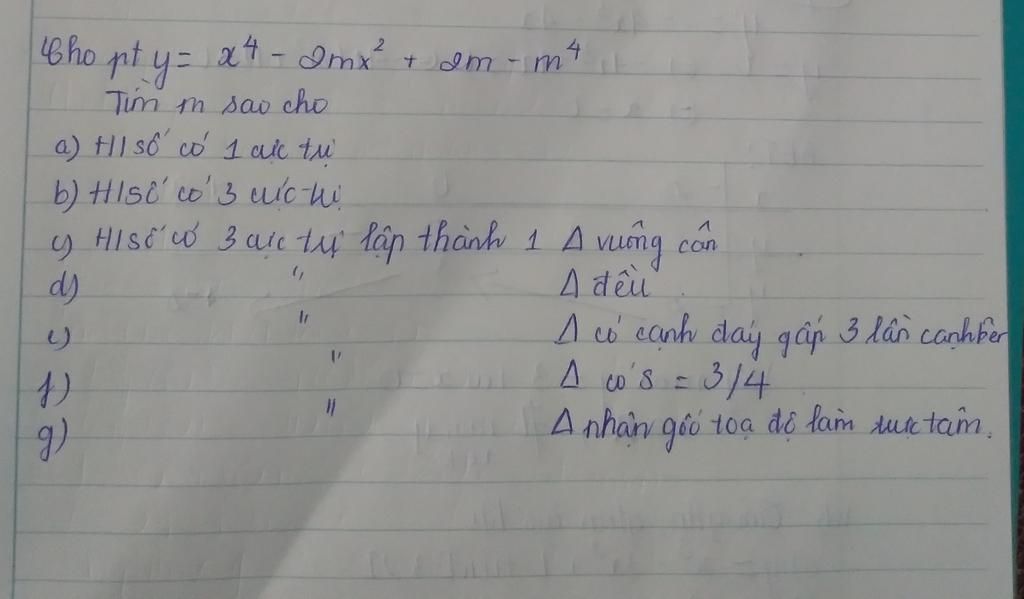 Cho pt y = x⁴ - 2mx² + 2m - m⁴
Tìm m sao cho
a) H/số có 1 cực trị
b) H/số có 3 cực trị
c) H/số có 3 cực trị lập thành 1 Δ vuông cân
d) " Δ đều
e) " Δ có cạnh đáy gấp 3 lần cạnh bên
f) " Δ có S = 3/4
g) " Δ nhận gốc toạ độ làm trực tâm.